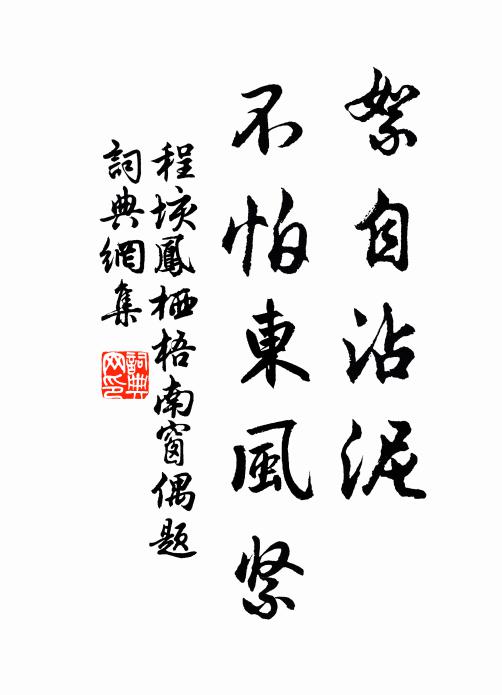 絮自沾泥
不怕東風緊
程垓鳳栖梧南窗偶題
詞典網集
詞典網印